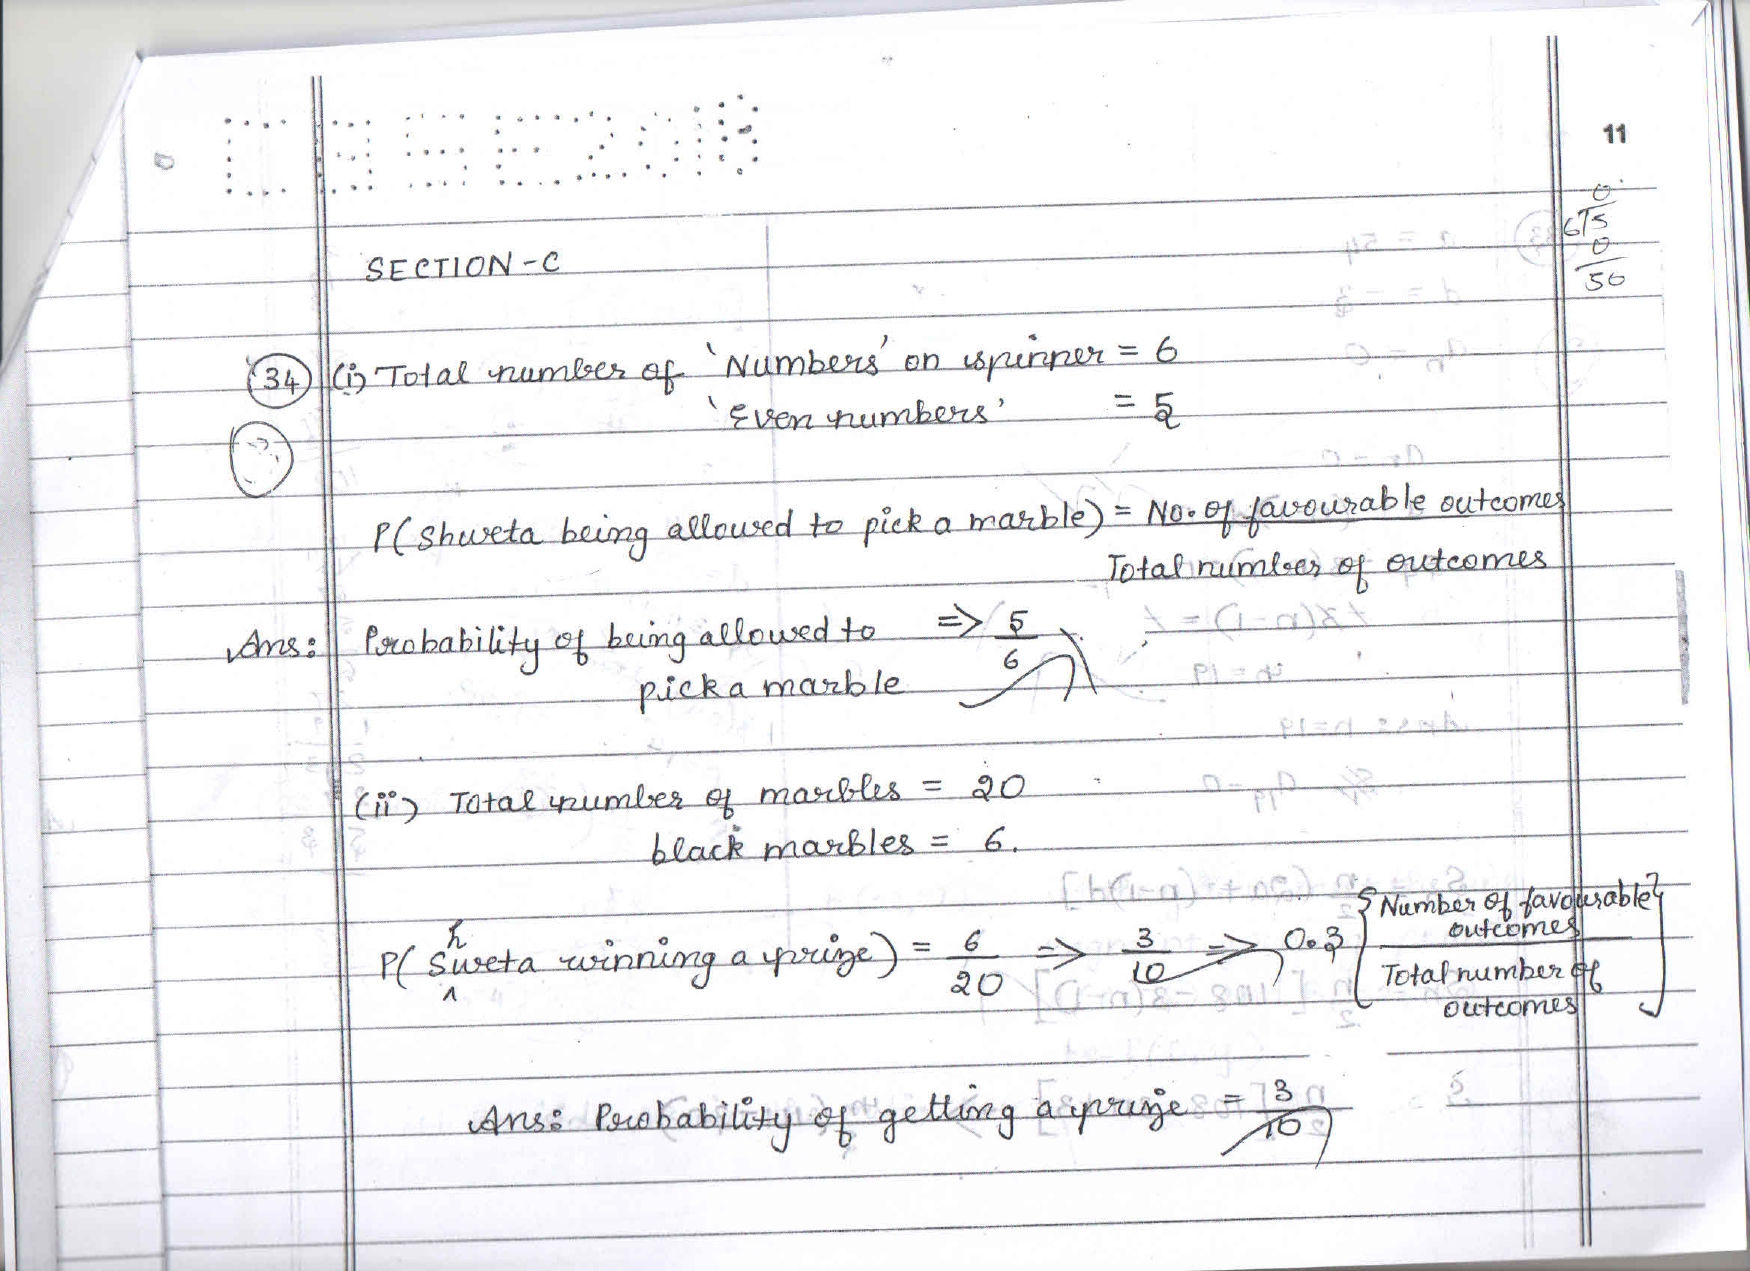 CBSE2018
11
0
6)5
0
50
SECTION-C
34 (i) Total number of 'Numbers' on spinner = 6
'Even numbers' = 5
P(Shweta being allowed to pick a marble) = No. of favourable outcomes
Total number of outcomes
Ans: Probability of being allowed to => 5
6
pick a marble
(ii) Total number of marbles = 20
black marbles = 6.
P(Shweta winning a prize) = 6/20 => 3/10 => 0.3 { Number of favourable outcomes
Total number of outcomes }
Ans: Probability of getting a prize = 3/10